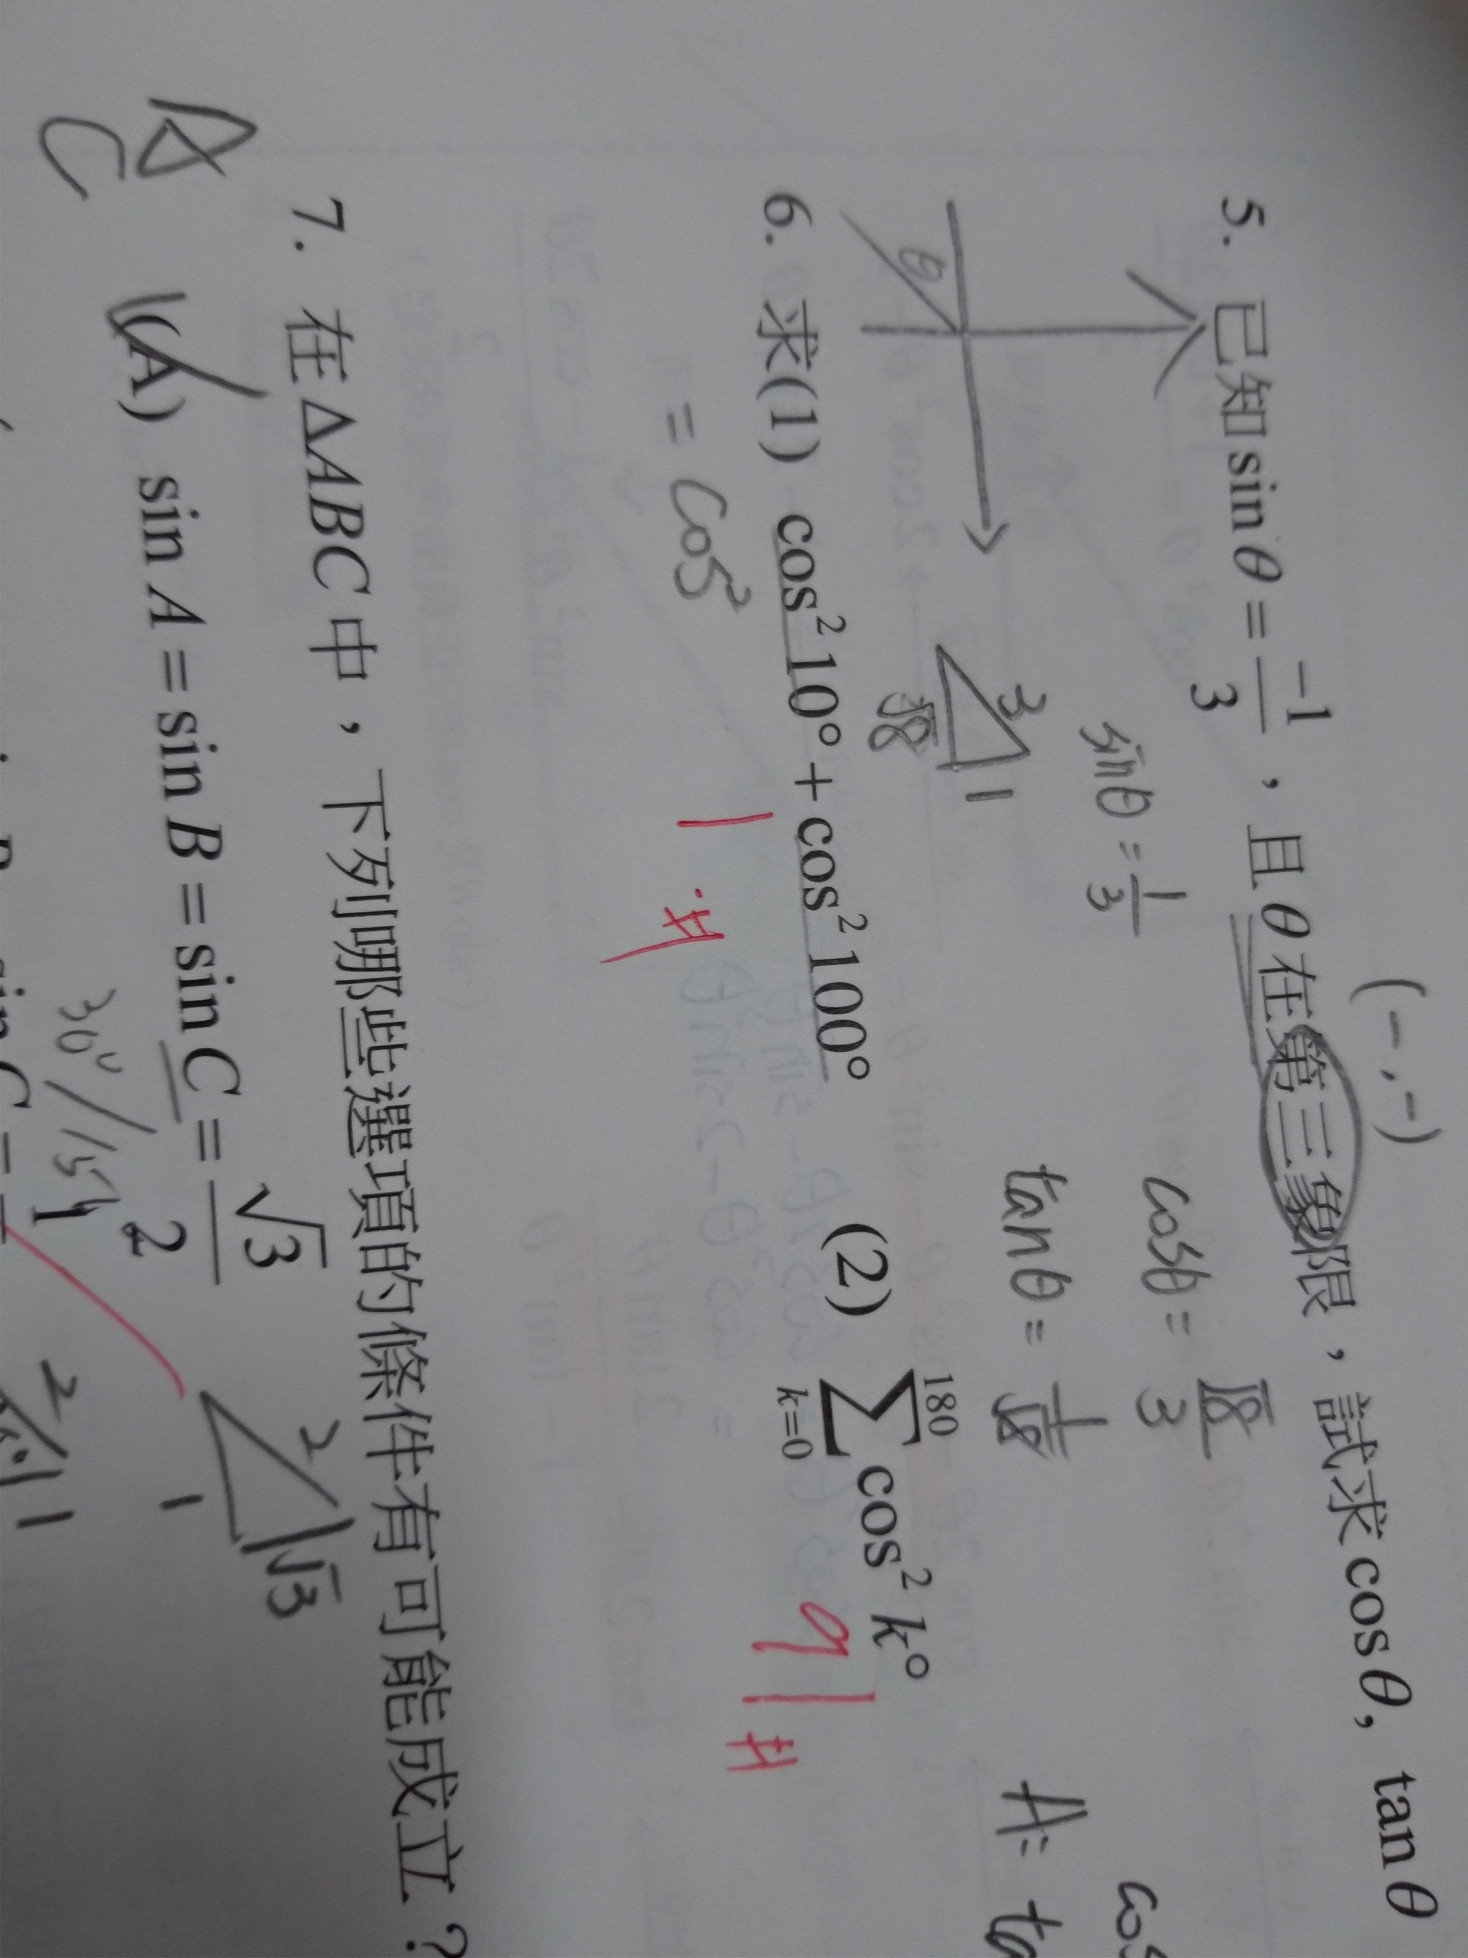 (-,-)
5. 已知 sin θ = -1/3 ，且 θ 在第三象限，試求 cos θ, tan θ
sinθ = 1/3
cosθ = √8/3
tanθ = 1/√8
3
1
√8
θ
A:
6. 求(1) cos² 10° + cos² 100° (2) ∑_{k=0}^{180} cos² k°
= cos²
1 #
91 #
7. 在 ΔABC 中，下列哪些選項的條件有可能成立？
(A) sin A = sin B = sin C = √3/2
2
√3
1
30°